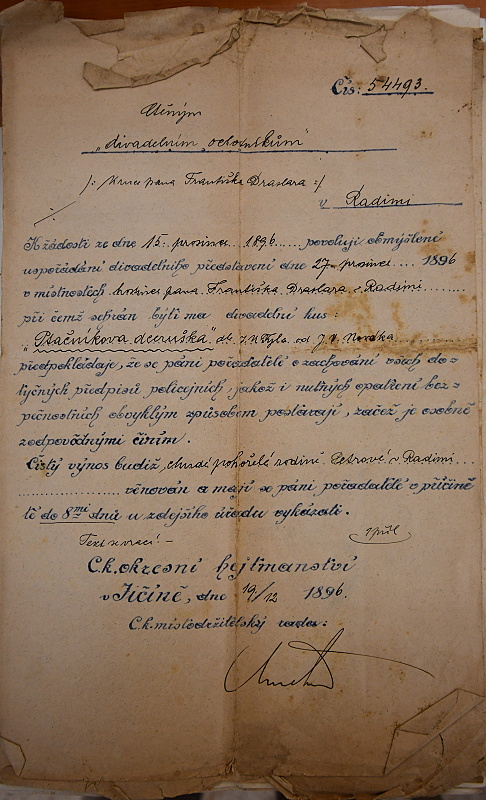 Čís: 54493.
Ctěným
„divadelním ochotníkům"
/: k ruce pana Františka Draslara :/
v Radimi
K žádosti ze dne 15. prosince 1896 povoluji obmýšlené
uspořádání divadelního představení dne 27. prosince 1896
v místnostech hostince pana Františka Draslara v Radimi
při čemž sehrán býti má divadelní kus:
„Ptačníkova dceruška" dle J. K. Tyla od
předpokládaje, že se páni pořadatelé o zachování všech do-
tyčných předpisů policejních, jakož i nutných opatření bez-
pečnostních obvyklým způsobem postarají, začež je osobně
zodpovědnými činím.
Čistý výnos budiž chudé pohořelé rodině Petrově v Radimi
věnován a mají se páni pořadatelé o příčině
té do 8mi dnů u zdejšího úřadu vykázati.
Text se vrací! —
C.k. okresní hejtmanství
v Jičíně, dne 19/12 1896.
C.k. místodržitelský rada: